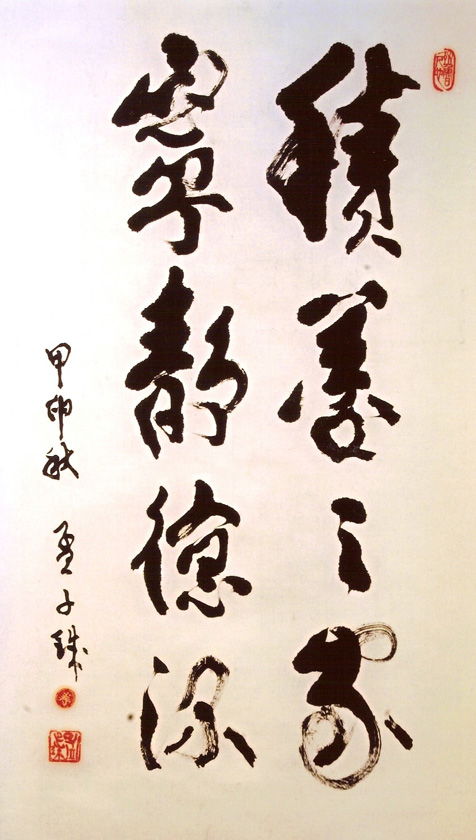 積善之家
寧靜德深
甲申秋 孟子鉄